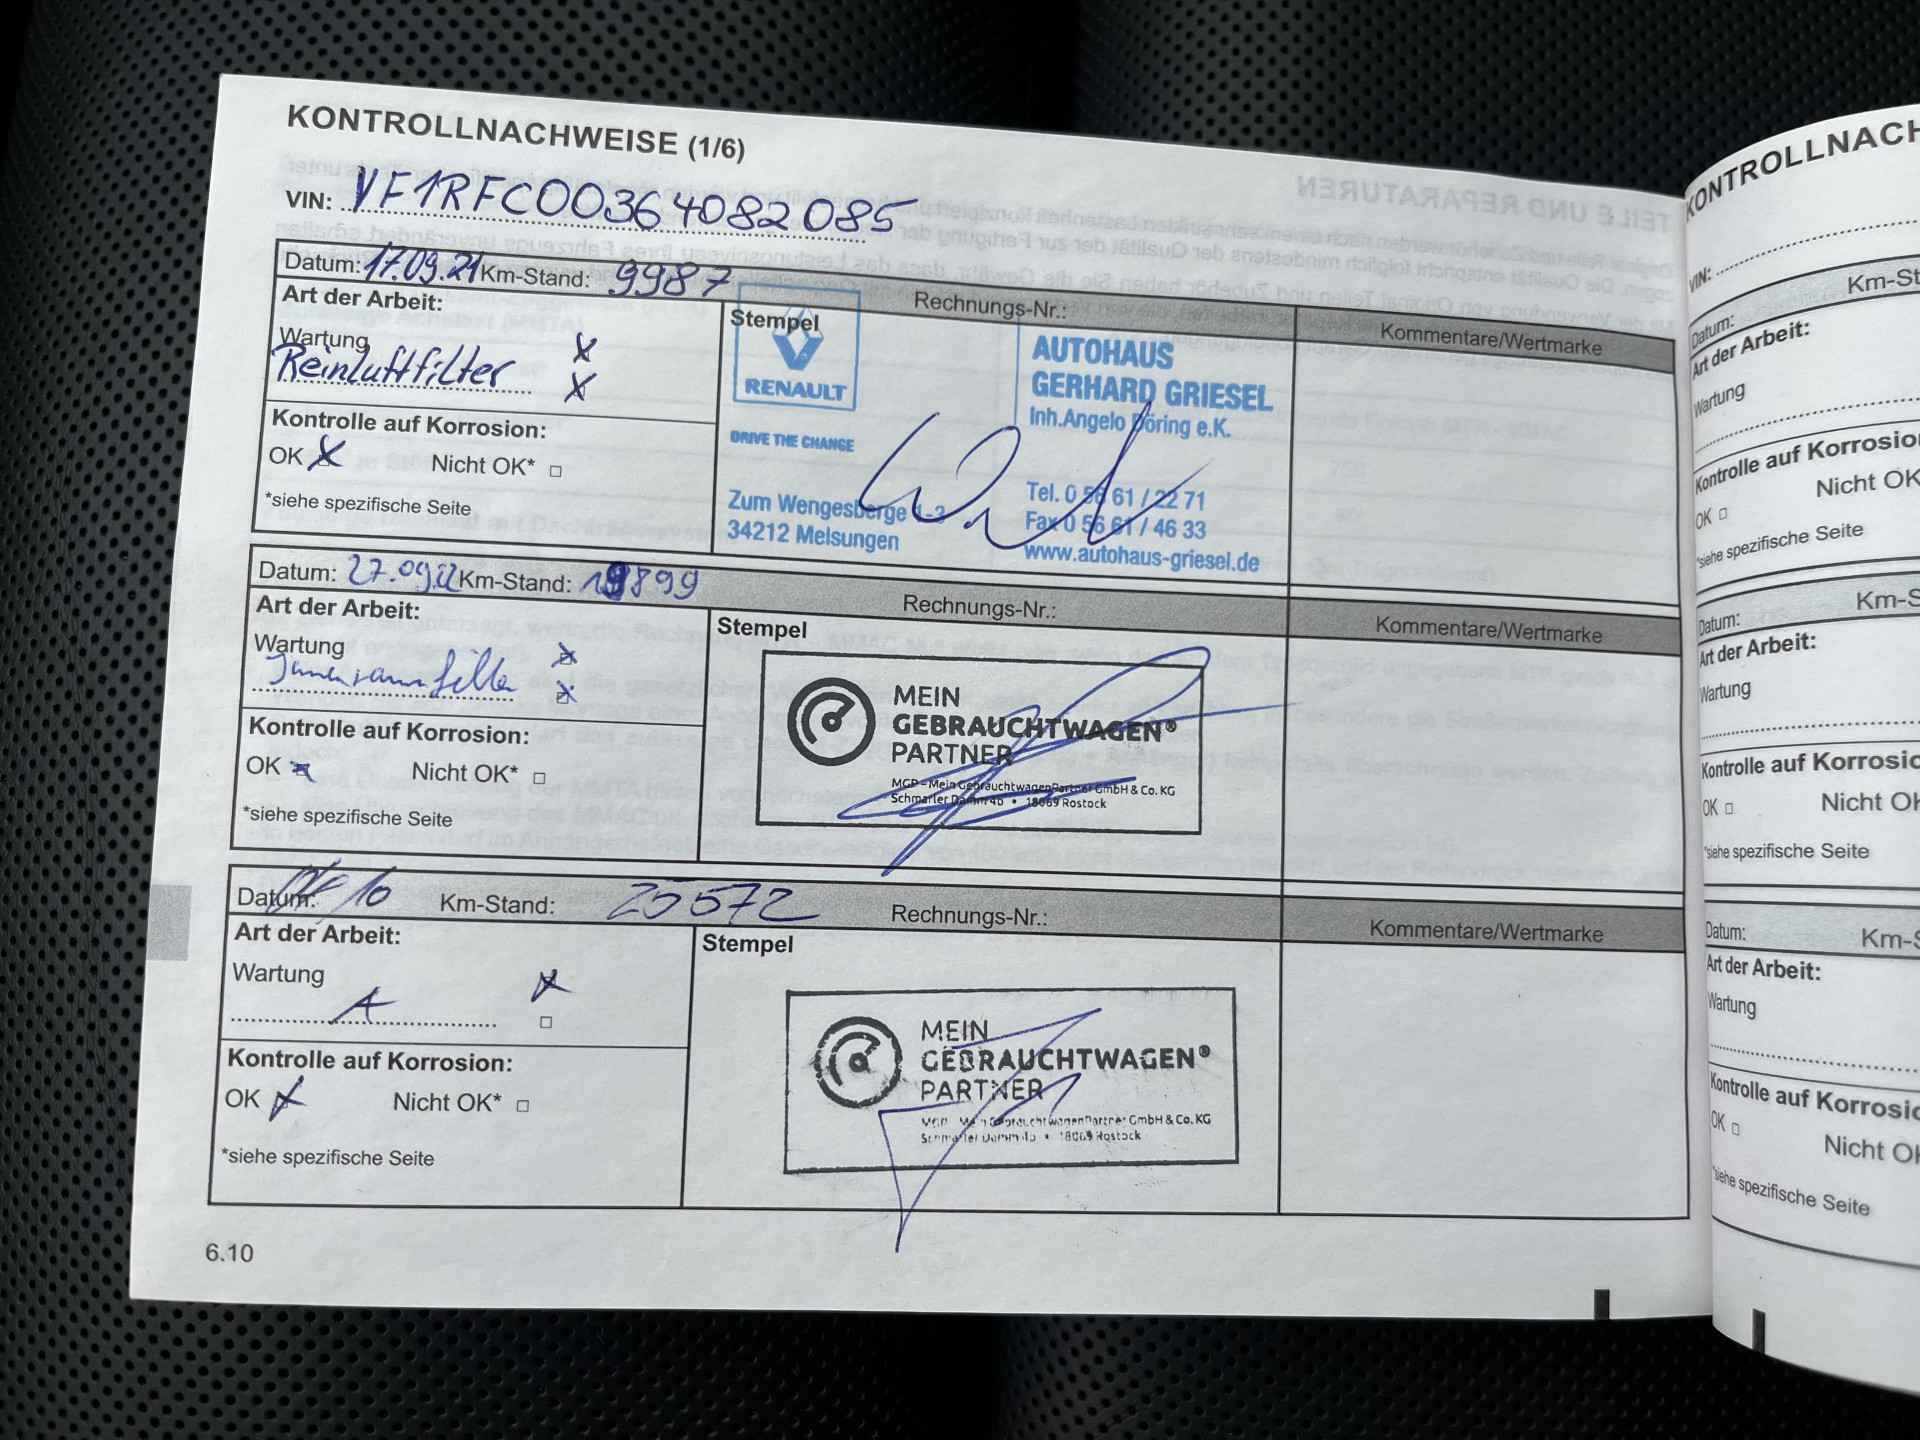 KONTROLLNACHWEISE (1/6)
VIN: VF1RFC00364082085
Datum: 17.09.21 Km-Stand: 9987 Rechnungs-Nr.: Kommentare/Wertmarke
Art der Arbeit:
Wartung X
Reinluftfilter X
Kontrolle auf Korrosion:
OK X Nicht OK* □
*siehe spezifische Seite
Stempel
RENAULT
DRIVE THE CHANGE
Zum Wengesberge 1-3
34212 Melsungen
AUTOHAUS
GERHARD GRIESEL
Inh.Angelo Döring e.K.
Tel. 0 56 61 / 22 71
Fax 0 56 61 / 46 33
www.autohaus-griesel.de
Datum: 27.09.22 Km-Stand: 19899 Rechnungs-Nr.: Kommentare/Wertmarke
Art der Arbeit:
Wartung X
Innenraumfilter X
Kontrolle auf Korrosion:
OK Nicht OK* □
*siehe spezifische Seite
Stempel
MEIN
GEBRAUCHTWAGEN®
PARTNER
MGP - Mein GebrauchtwagenPartner GmbH & Co. KG
Schmarler Damm 4b • 18069 Rostock
Datum: Km-Stand: 25572 Rechnungs-Nr.: Kommentare/Wertmarke
Art der Arbeit:
Wartung X
A □
Kontrolle auf Korrosion:
OK X Nicht OK* □
*siehe spezifische Seite
Stempel
MEIN
GEBRAUCHTWAGEN®
PARTNER
MGP - Mein GebrauchtwagenPartner GmbH & Co. KG
Schmarler Damm 4b • 18069 Rostock
6.10
KONTROLLNACH
VIN:
Datum: Km-St
Art der Arbeit:
Wartung
Kontrolle auf Korrosio
OK □ Nicht OK
*siehe spezifische Seite
Datum: Km-S
Art der Arbeit:
Wartung
Kontrolle auf Korrosio
OK □ Nicht OK
*siehe spezifische Seite
Datum: Km-S
Art der Arbeit:
Wartung
Kontrolle auf Korrosio
OK □ Nicht OK
*siehe spezifische Seite